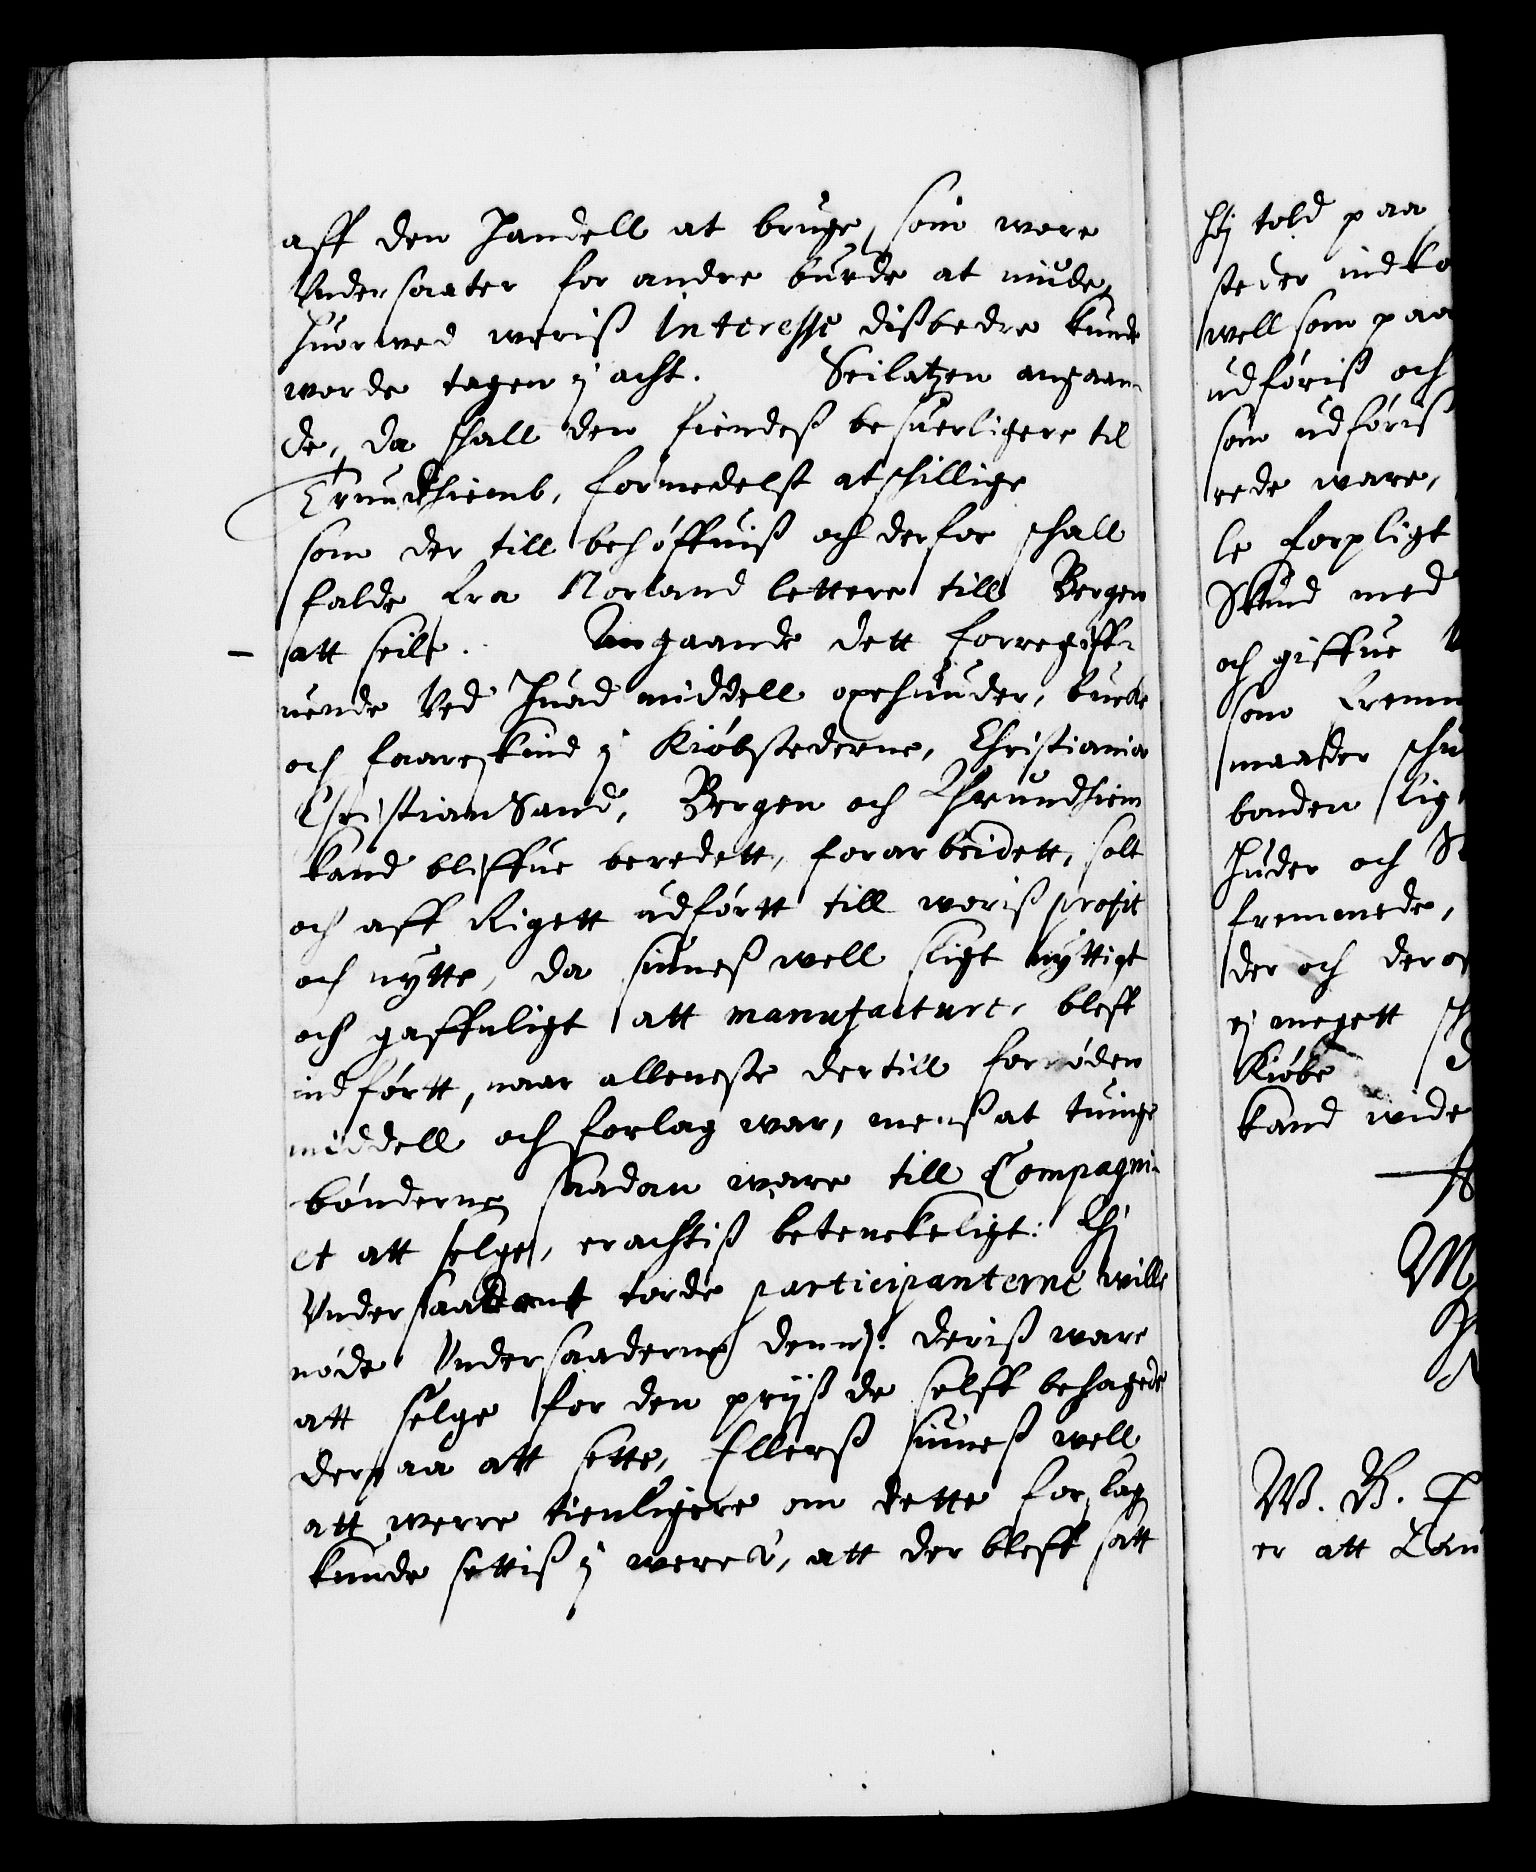 aff den Handell at bruge, som wore
Undersaater for andre burde at niude,
huorwed woriß Interesse dißbedre kunde
worde tagen j acht. Seilatzen angaaen¬
de, da schall den findeß besuerligere til
Trundhiemb, formedelst atschillige
som der till behøffuiß och derfor schall
falde fra Norland lettere till Bergen
att seile. Angaande dett forregiff¬
uende Ved Huad middell oxehuuder, bucke
och faareskind j Kiøbstederne, Christiania
ChristianSand, Bergen och Thrundhiem
kand bliffue beredett, forarbeidett, solt
och aff Rigett udførtt till woriß profit
och nytte, da siuneß well sligt nyttigt
och gaffnligt att manufacture bleff
indførtt, naar alleneste dertill fornøden
middell och forlag war, menß at tuinge
bønderne saadan ware till Compagni¬
et att selge, erachtiß betenckeligt: Thi
Undersaadant torde participanterne wille
nøde Undersaaderne deriß ware
att selge for den prijß de selff behagede
derpaa att sette, Ellerß siuneß well
att werre tienligere om dette forslag
kunde settiß j werck, att der bleff satt
høj told paa
steder indko
well som paa
udføriß och
som udføriß
rede ware,
le forpligt
Skind med
och giffue
som fremm
maader schu
bonden lig
Huder och S
fremmede,
der och dera
ej megett sch
Kiøbe
kand wide
M
W. B. F
er att Lau